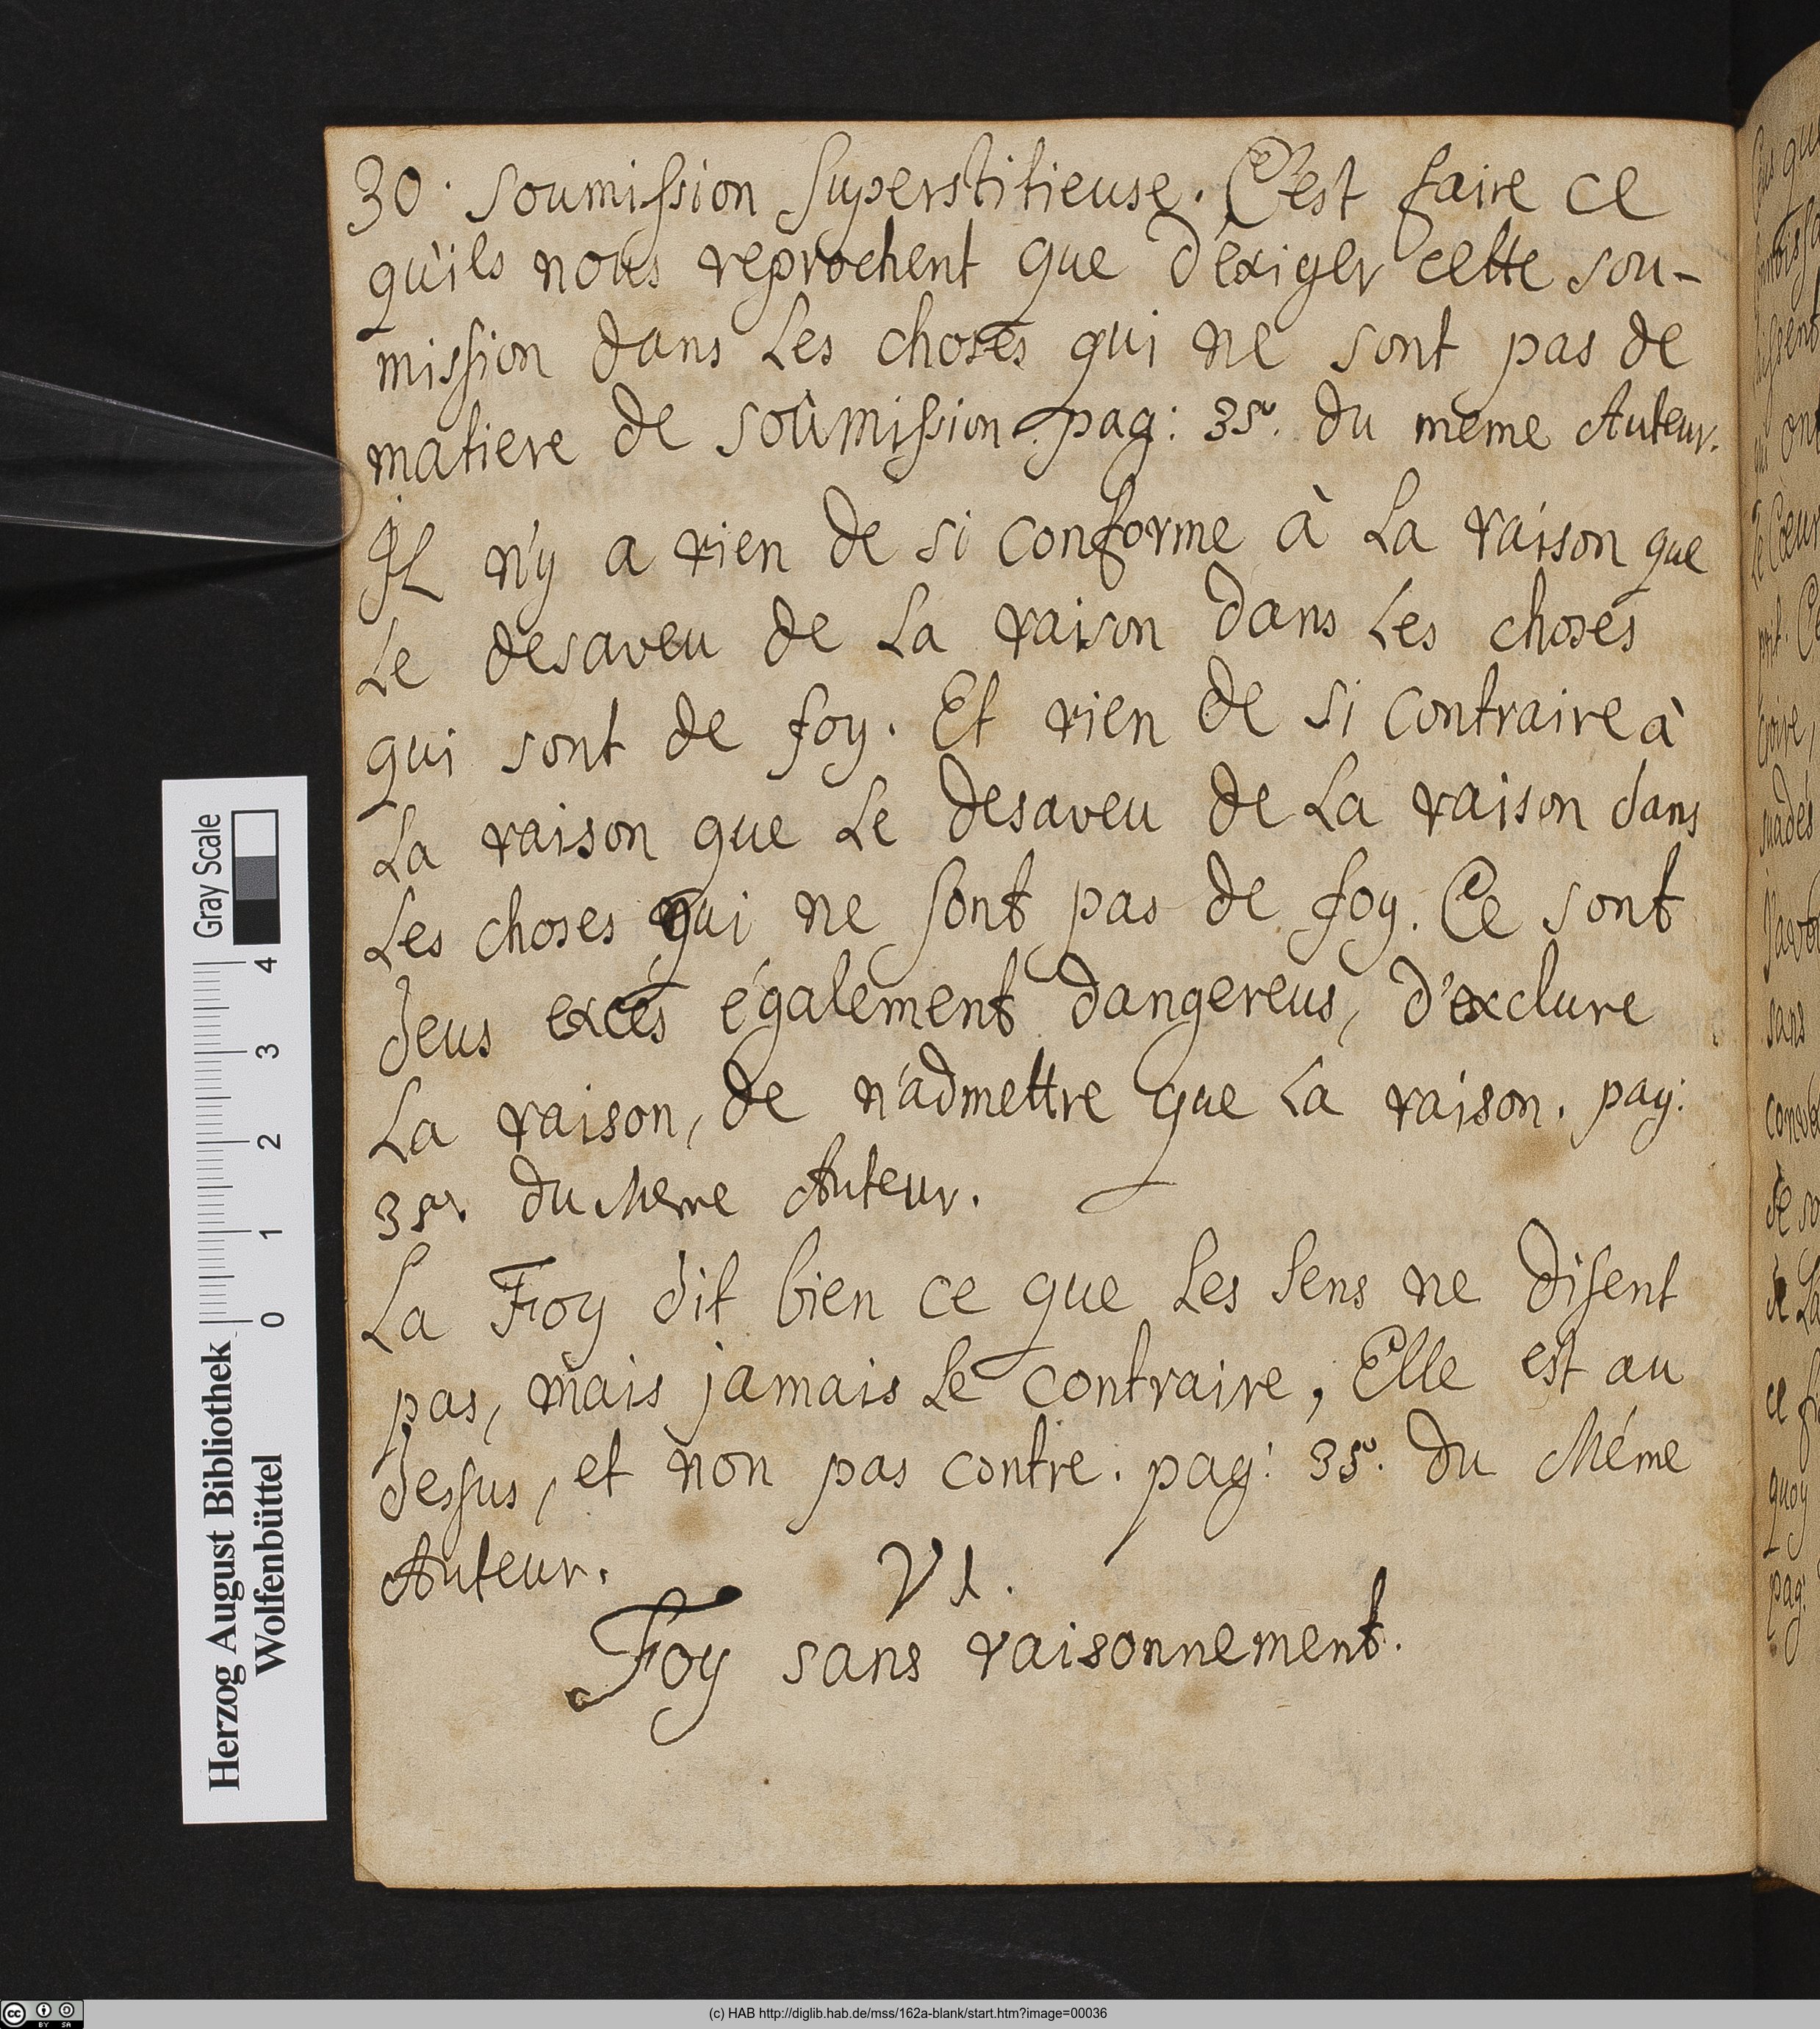 30. soumission superstitieuse. C'est faire ce
qu'ils nous reprochent que d'exiger cette sou-
mission dans Les choses qui ne sont pas de
matiere de soûmission. pag: 35. du meme Auteur.
iL n'y a rien de si conforme à La raison que
Le desaveu de La raison dans Les choses
qui sont de foy. Et rien de si contraire à
La raison que Le desaveu de La raison dans
Les choses qui ne sont pas de foy. Ce sont
deus excés également dangereus, d'exclure
La raison, de n'admettre que La raison. pag:
35. du Meme Auteur.
La Foy dit bien ce que Les sens ne disent
pas, mais jamais Le contraire, Elle est au
dessus, et non pas contre. pag: 35. du Méme
Auteur.
VI.
Foy sans raisonnement.
Gray Scale
4
3
2
1
0
Herzog August Bibliothek
Wolfenbüttel
(c) HAB http://diglib.hab.de/mss/162a-blank/start.htm?image=00036